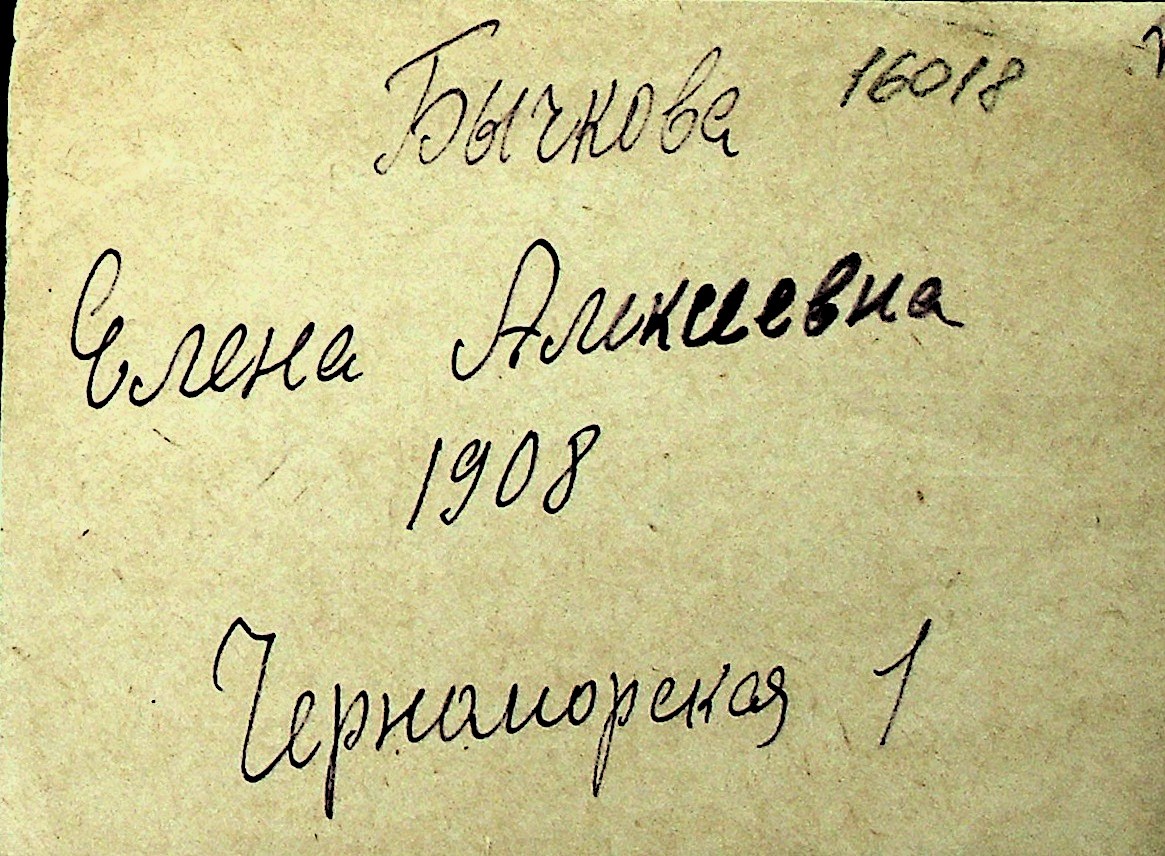 Бычкова 16018
Елена Алексеевна
1908
Черноморская 1